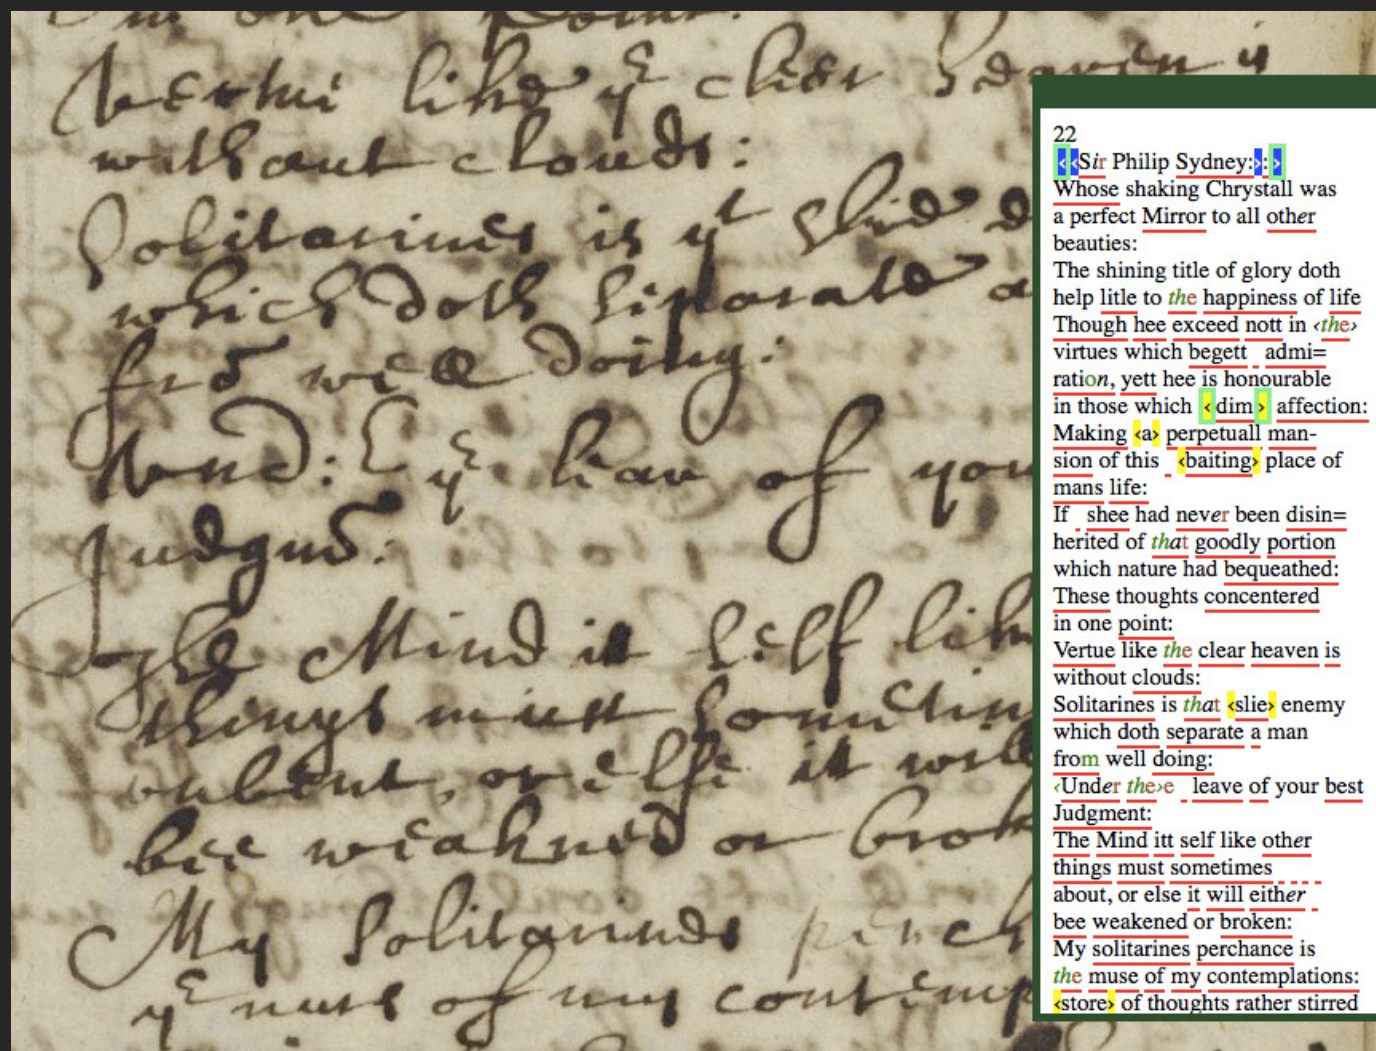 in one point:
Vertue like yͤ cleer heaven is
without clouds:
Solitarines is yͭ slie
which doth separate a
frō well doing:
Vnd: yͤ leav of you
Judgmͭ:
The Mind it self lik
things must sometim
unbent, or else it will
bee weakned or brok
My solitarines perch
yͤ nurs of my contemp
22
‹‹Sir Philip Sydney:›:›
Whose shaking Chrystall was
a perfect Mirror to all other
beauties:
The shining title of glory doth
help litle to the happiness of life
Though hee exceed nott in ‹the›
virtues which begett admi=
ration, yett hee is honourable
in those which ‹dim› affection:
Making ‹a› perpetuall man-
sion of this ‹baiting› place of
mans life:
If shee had never been disin=
herited of that goodly portion
which nature had bequeathed:
These thoughts concentered
in one point:
Vertue like the clear heaven is
without clouds:
Solitarines is that ‹slie› enemy
which doth separate a man
from well doing:
‹Under the›e leave of your best
Judgment:
The Mind itt self like other
things must sometimes
about, or else it will either
bee weakened or broken:
My solitarines perchance is
the muse of my contemplations:
‹store› of thoughts rather stirred